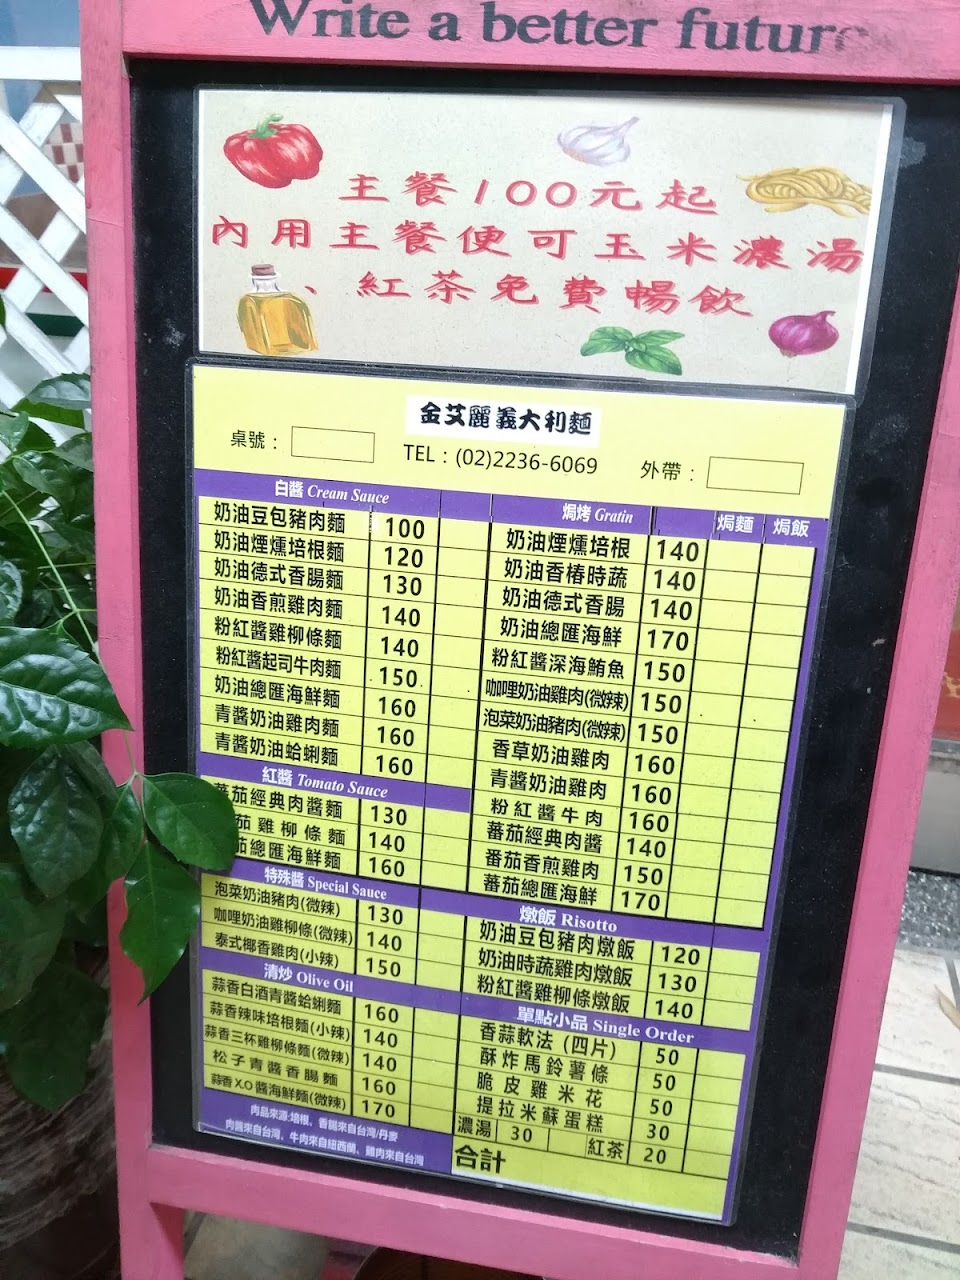 Write a better future
主餐100元起
內用主餐便可玉米濃湯
、紅茶免費暢飲
金艾麗義大利麵
桌號：
TEL：(02)2236-6069
外帶：
白醬 Cream Sauce
奶油豆包豬肉麵 100
奶油煙燻培根麵 120
奶油德式香腸麵 130
奶油香煎雞肉麵 140
粉紅醬雞柳條麵 140
粉紅醬起司牛肉麵 150
奶油總匯海鮮麵 160
青醬奶油雞肉麵 160
青醬奶油蛤蜊麵 160
紅醬 Tomato Sauce
蕃茄經典肉醬麵 130
茄雞柳條麵 140
茄總匯海鮮麵 160
特殊醬 Special Sauce
泡菜奶油豬肉(微辣) 130
咖哩奶油雞柳條(微辣) 140
泰式椰香雞肉(小辣) 150
清炒 Olive Oil
蒜香白酒青醬蛤蜊麵 160
蒜香辣味培根麵(小辣) 140
蒜香三杯雞柳條麵(微辣) 140
松子青醬香腸麵 160
蒜香X.O醬海鮮麵(微辣) 170
肉品來源:培根、香腸來自台灣/丹麥
肉醬來自台灣、牛肉來自紐西蘭、雞肉來自台灣
焗烤 Gratin 焗麵 焗飯
奶油煙燻培根 140
奶油香椿時蔬 140
奶油德式香腸 140
奶油總匯海鮮 170
粉紅醬深海鮪魚 150
咖哩奶油雞肉(微辣) 150
泡菜奶油豬肉(微辣) 150
香草奶油雞肉 160
青醬奶油雞肉 160
粉紅醬牛肉 160
蕃茄經典肉醬 140
蕃茄香煎雞肉 150
蕃茄總匯海鮮 170
燉飯 Risotto
奶油豆包豬肉燉飯 120
奶油時蔬雞肉燉飯 130
粉紅醬雞柳條燉飯 140
單點小品 Single Order
香蒜軟法 (四片) 50
酥炸馬鈴薯條 50
脆皮雞米花 50
提拉米蘇蛋糕 30
濃湯 30 紅茶 20
合計